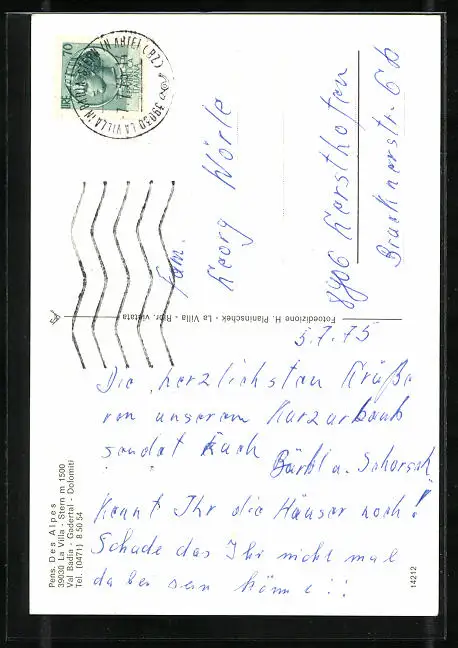 70
LIRE
ITALIANA
39030 LA VILLA IN BADIA
IN ABTEI (BZ)
Fam.
Georg Wörle
8906 Gersthofen
Brucknerstr. 6b
Fotoedizione H. Planinschek - La Villa - Ripr. vietata
5.7.75
Die herzlichsten Grüße
von unserem Kurzurlaub
sendet Euch Bärbl u. Schorsch
Kennt Ihr die Häuser noch!
Schade das Ihr nicht mal
dabei sein könnt!!
Pens. Des Alpes
39030 La Villa - Stern m 1500
Val Badia - Gadertal - Dolomiti
Tel. (0471) 8 50 54
14212